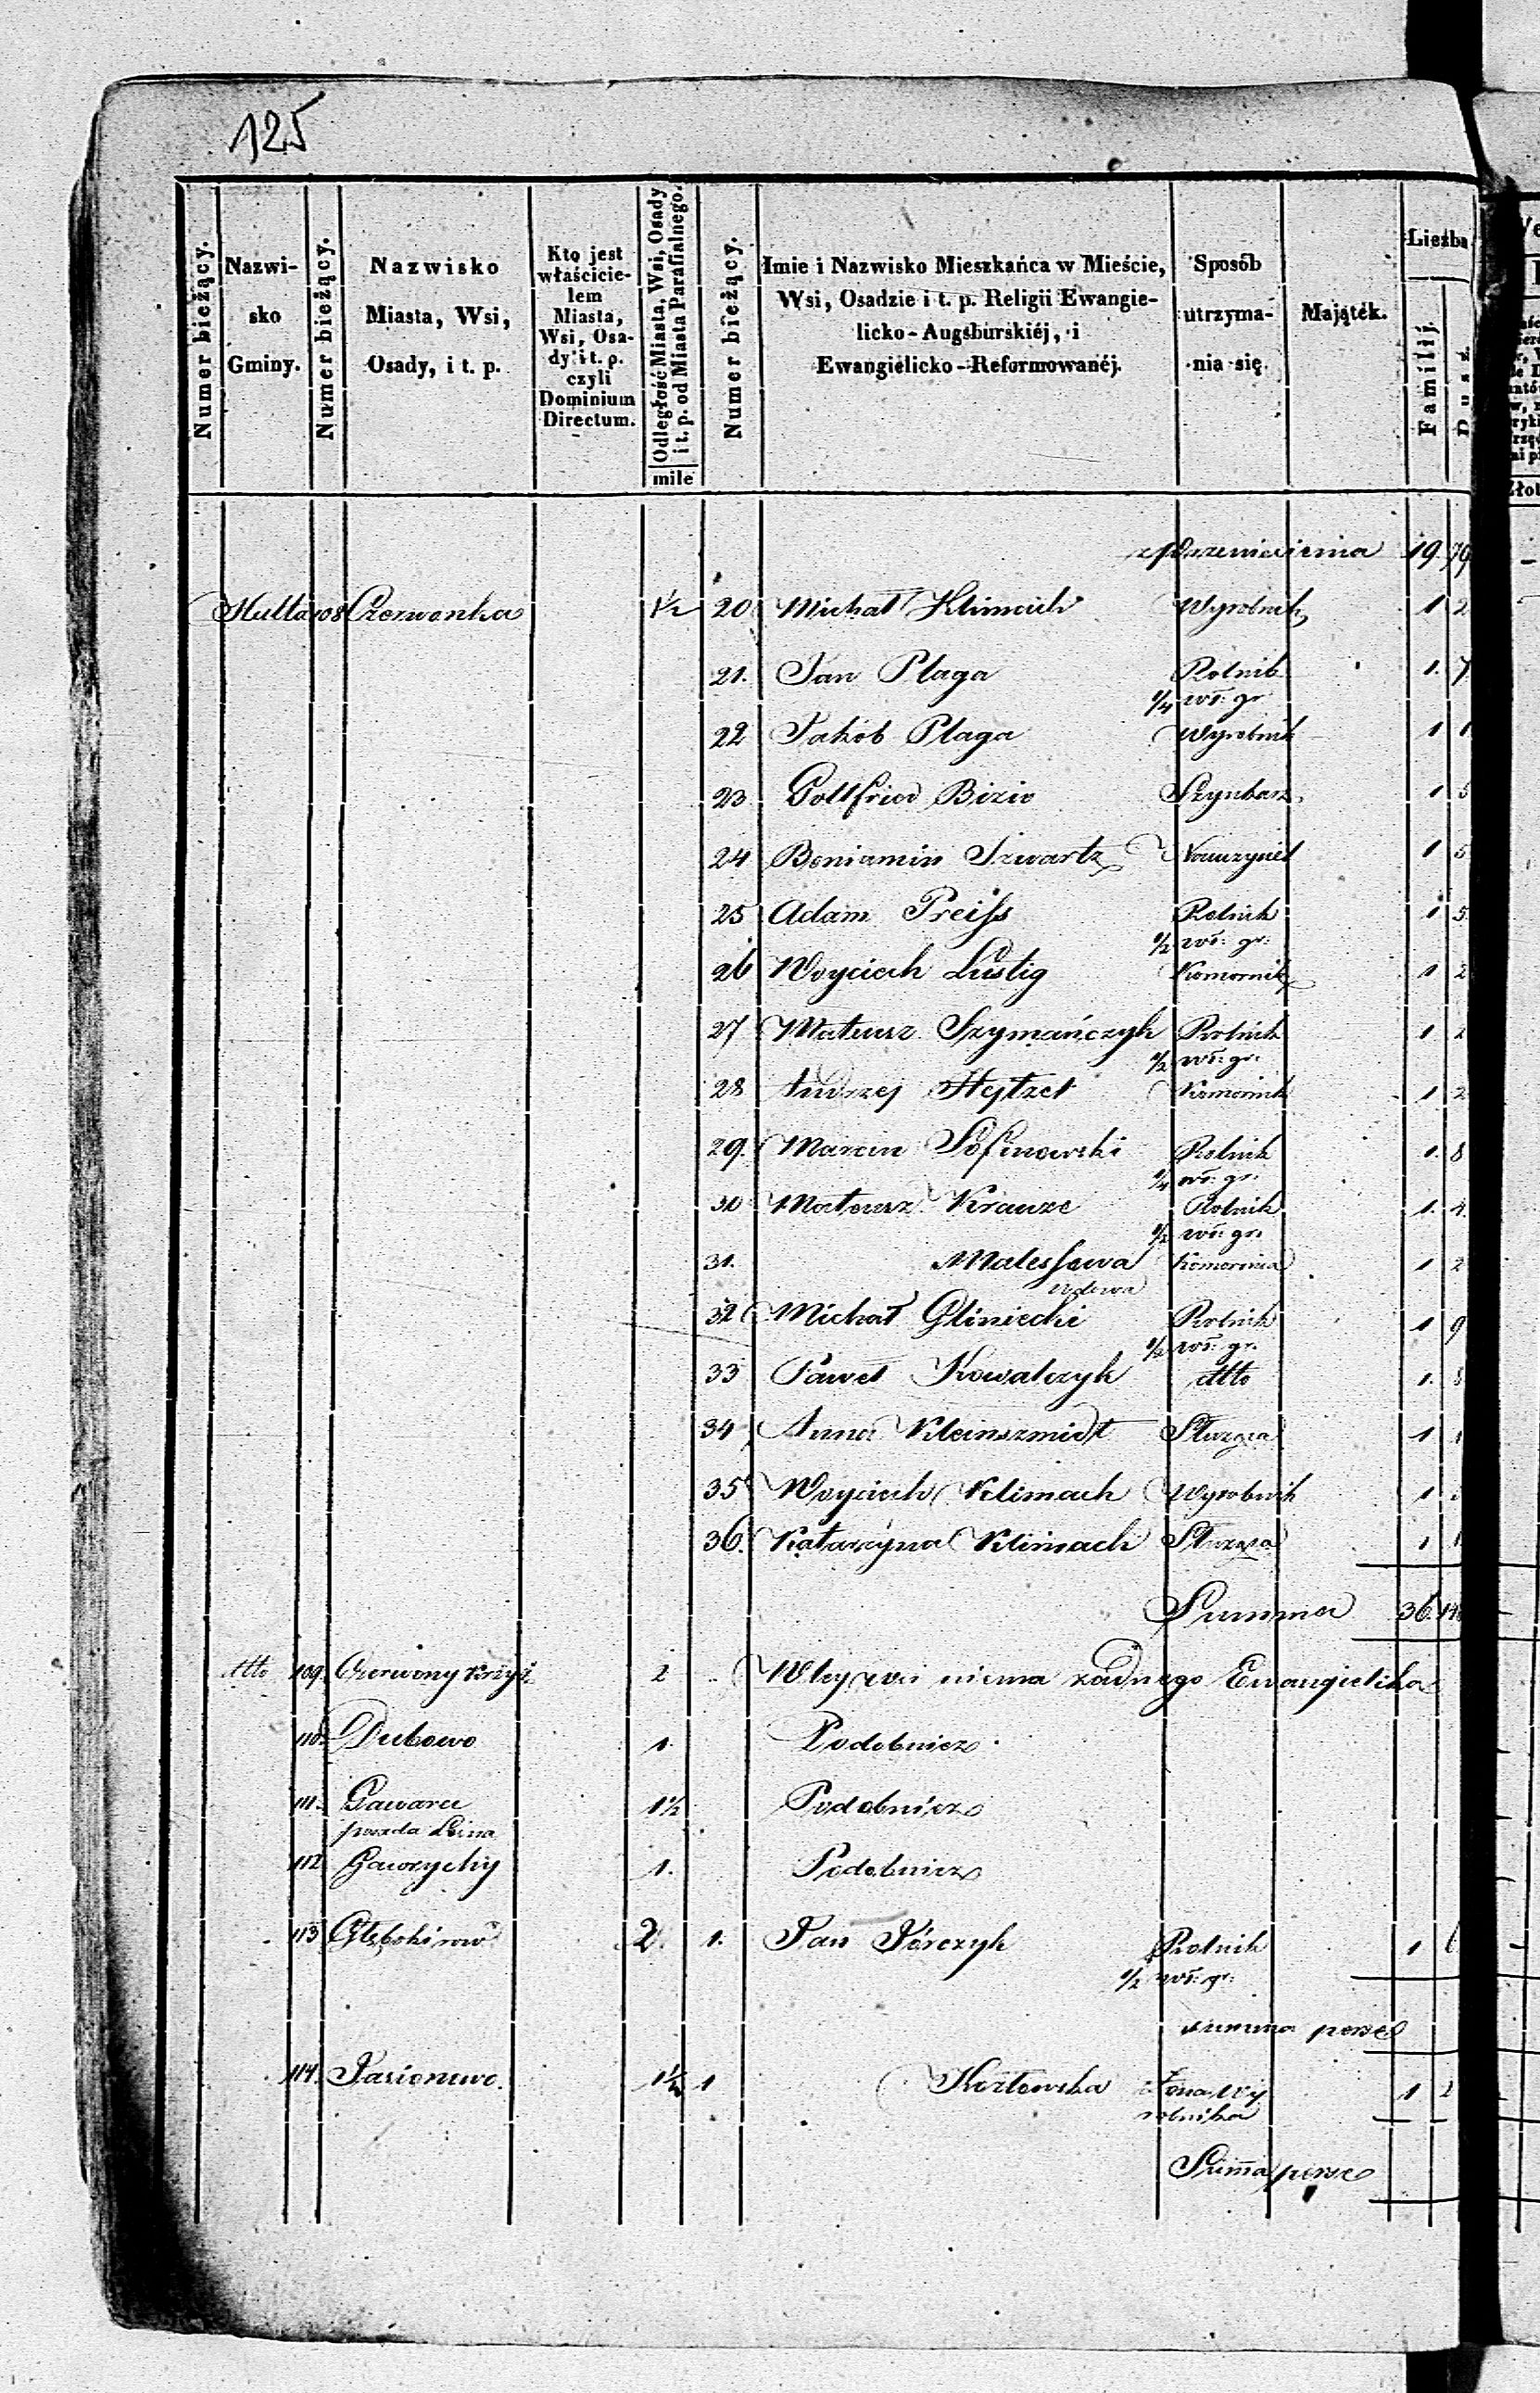 125
Numer bieżący.
Nazwi-
sko
Gminy.
Numer bieżący.
Nazwisko
Miasta, Wsi,
Osady, i t. p.
Kto jest
właścicie-
lem
Miasta,
Wsi, Osa-
dy i t. p.
czyli
Dominium
Directum.
Odległość Miasta, Wsi, Osady
i t. p. od Miasta Parafialnego.
mile
Numer bieżący.
Imie i Nazwisko Mieszkańca w Mieście,
Wsi, Osadzie i t. p. Religii Ewangie-
licko-Augsburskiéj, i
Ewangielicko-Reformowanéj.
Sposób
utrzyma-
nia się.
Majątek.
Liczba
Familij.
Dusz.
z przeniesienia 19 79
108 Czerwonka 1½ 20 Michał Klimach Wyrobnik 1 2
21. Jan Plaga Rolnik 1. 7
¼ wł: gr
22 Jakób Plaga Wyrobnik 1 1
23 Gottfried Szynkarz 1 5
24 Beniamin Szwartz Nauczyciel 1 5
25 Adam Preiss Rolnik 1 5
½ wł: gr:
26 Woyciech Lustig Komornik 1 2
27 Mateusz Szymańczyk Rolnik 1 2
½ wł: gr:
28 Andrzej Komornik 1 2
29. Marcin Rolnik 1. 8
¼ wł: gr:
30 Mateusz Krauze Rolnik 1. 4.
½ wł: gr:
31. Malessowa Komornica 1 2
wdowa
32 Michał Gliniecki Rolnik 1 9
½ wł: gr.
33 Paweł Kowalczyk dtto 1. 8
34 Anna Kleinszmidt Służąca 1
35 Woyciech Klimach Wyrobnik 1
36. Katarzyna Klimach Służąca 1 1
Summa 36.
dtto 109. Czerwony Krzyż 2 W tej wsi niema żadnego Ewangielika
110. Dubowo 1. Podobnież
111. 1½ Podobnież
112 Gawrychy 1. Podobnież
113 Głęboki rów 2. 1. Jan Rolnik 1 6
½ wł: gr:
summa perse
114. Jasionowo. 1½ 1 Kozłowska Żona Wy 1 2
robnika
Suma perse